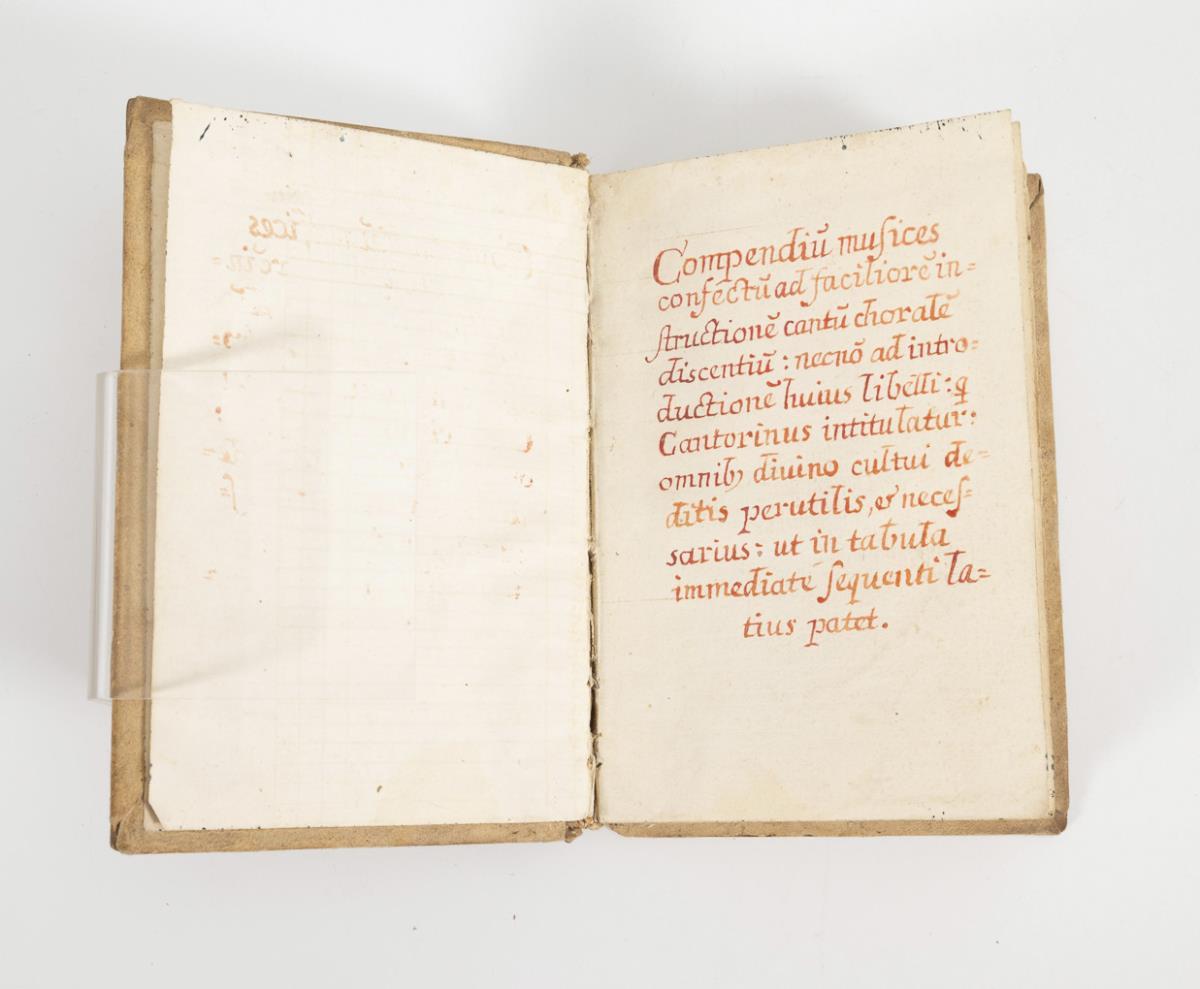 Compendiũ muſices
confectũ ad faciliorẽ in=
ſtructionẽ cantũ choralẽ
discentiũ: necnõ ad intro=
ductionẽ huius libelli: q̃
Cantorinus intitulatur:
omnibꝫ diuino cultui de=
ditis perutilis, & neceſ=
sarius: ut in tabula
immediate ſequenti la=
tius patet.